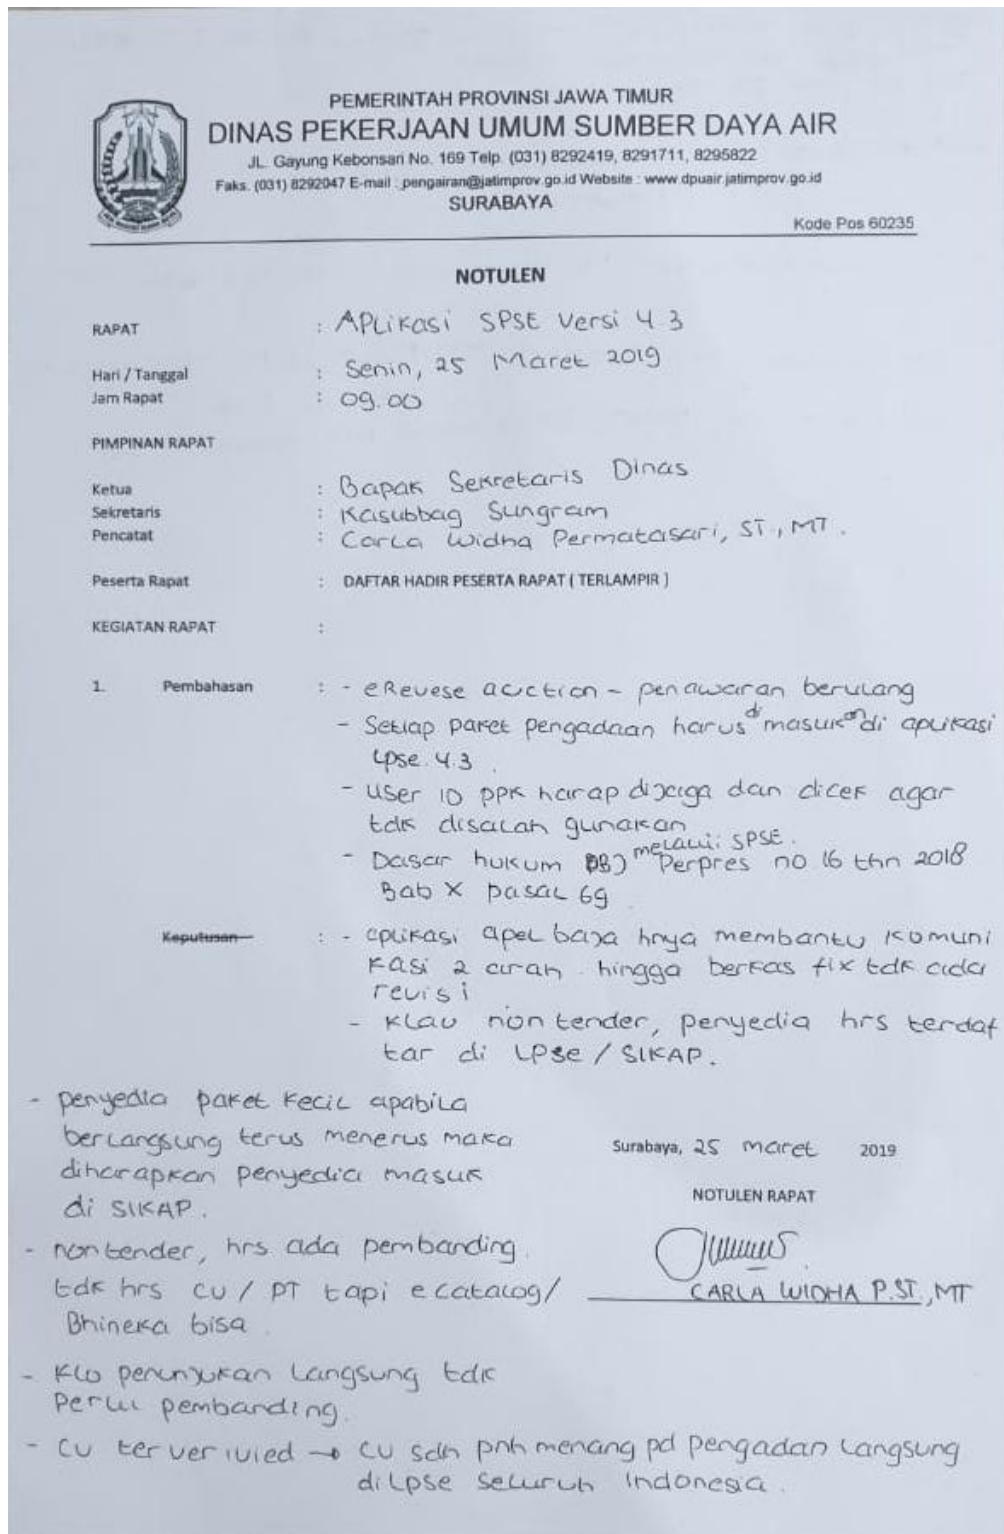 PEMERINTAH PROVINSI JAWA TIMUR
DINAS PEKERJAAN UMUM SUMBER DAYA AIR
JL. Gayung Kebonsari No. 169 Telp. (031) 8292419, 8291711, 8295822
Faks. (031) 8292047 E-mail : pengairan@jatimprov.go.id Website : www.dpuair.jatimprov.go.id
SURABAYA
Kode Pos 60235
NOTULEN
RAPAT : APLikasi SPSE Versi 4.3
Hari / Tanggal : Senin, 25 Maret 2019
Jam Rapat : 09.00
PIMPINAN RAPAT
Ketua : Bapak Sekretaris Dinas
Sekretaris : Kasubbag Sungram
Pencatat : Carla Widha Permatasari, ST., MT.
Peserta Rapat : DAFTAR HADIR PESERTA RAPAT ( TERLAMPIR )
KEGIATAN RAPAT :
1. Pembahasan : - eRevese auction - penawaran berulang
- Setiap paket pengadaan harus dimasukan di aplikasi
Lpse 4.3.
- User ID PPK harap dijaga dan dicek agar
tdk disalah gunakan
- Dasar hukum PBJ melalui SPSE. Perpres no 16 thn 2018
Bab X pasal 69.
Keputusan : - aplikasi apel baja hnya membantu komuni
kasi 2 arah hingga berkas fix tdk ada
revisi
- klau non tender, penyedia hrs terdaf
tar di LPSE / SIKAP.
- penyedia paket kecil apabila
berlangsung terus menerus maka
diharapkan penyedia masuk
di SIKAP.
Surabaya, 25 maret 2019
NOTULEN RAPAT
CARLA WIDHA P.ST., MT
- non tender, hrs ada pembanding.
tdk hrs CV / PT tapi e catalog/
Bhineka bisa.
- klo penunjukan Langsung tdk
Perlu pembanding.
- CV ter ver ivied → CV sdh pnh menang pd pengadan Langsung
di Lpse seluruh Indonesia.